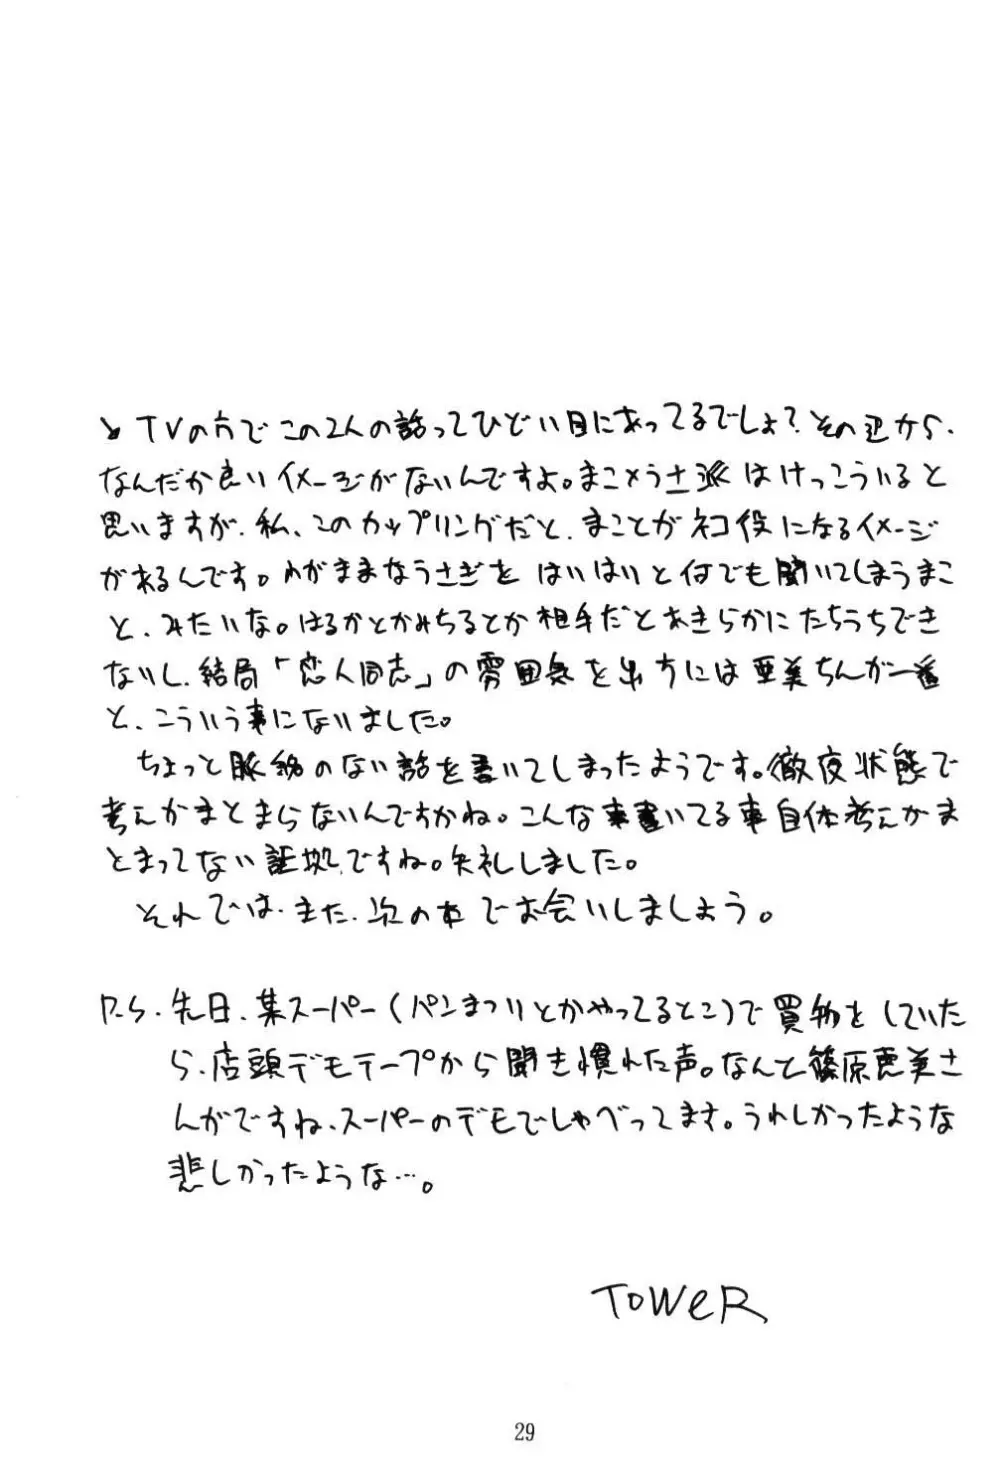 とTVの方でこの2人の話ってひどい目にあってるでしょ?その辺から、
なんだか良いイメージがないんですよ。まこ×うさ派はけっこういると
思いますが、私、このカップリングだと、まことがネコ役になるイメージ
があるんです。わがままなうさぎをはいはいと何でも聞いてしまうまこ
と、みたいな。はるかとかみちるとか相手だとあきらかにたちうちでき
ないし、結局「恋人同志」の雰囲気を出す方には亜美ちんが一番
と、こういう事になりました。
ちょっと脈絡のない話を書いてしまったようです。徹夜状態で
考えがまとまらないんですかね。こんな事書いてる事自体考えがま
とまってない証拠ですね。失礼しました。
それでは、また、次の本でお会いしましょう。
P.S. 先日、某スーパー(パンまつりとかやってるとこ)で買物をしていた
ら、店頭デモテープから聞き慣れた声。なんと篠原恵美さ
んがですね、スーパーのデモでしゃべってます。うれしかったような
悲しかったような…。
TOWeR
29